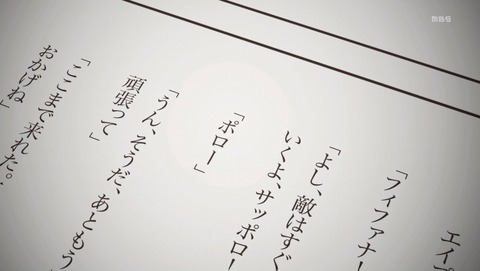 エイプ
「フィファナー
「よし、敵はすぐ
いくよ、サッポロー
「ポロー」
「うん、そうだ、あともう
頑張って」
「ここまで来れた。
おかげね」